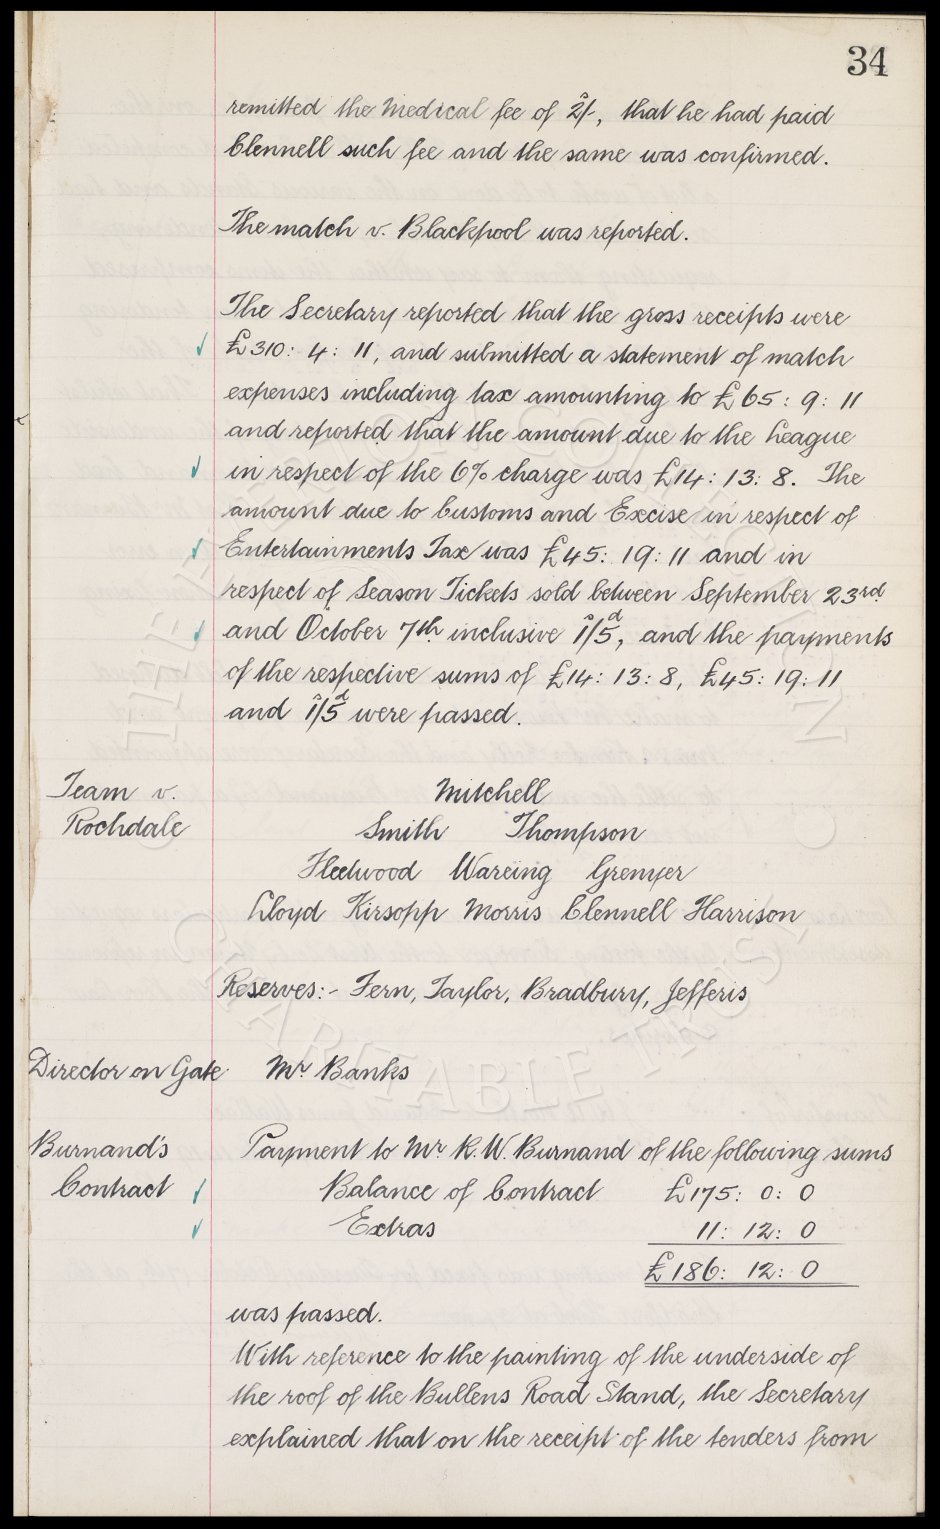 34
remitted the medical fee of 2/-, that he had paid
Clennell such fee and the same was confirmed.
The match v. Blackpool was reported.
The Secretary reported that the gross receipts were
£310: 4: 11, and submitted a statement of match
expenses including tax amounting to £65: 9: 11
and reported that the amount due to the League
in respect of the 6% charge was £14: 13: 8. The
amount due to Customs and Excise in respect of
Entertainments Tax was £45: 19: 11 and in
respect of Season Tickets sold between September 23rd
and October 7th inclusive 1/5d, and the payments
of the respective sums of £14: 13: 8, £45: 19: 11
and 1/5d were passed.
Team v. Mitchell
Rochdale Smith Thompson
Fleetwood Wareing Grenyer
Lloyd Kirsopp Morris Clennell Harrison
Reserves:- Fern, Taylor, Bradbury, Jefferis
Director on Gate Mr Banks
Burnand's Payment to Mr R. W. Burnand of the following sums
Contract Balance of Contract £175: 0: 0
Extras 11: 12: 0
£186: 12: 0
was passed.
With reference to the painting of the underside of
the roof of the Bullens Road Stand, the Secretary
explained that on the receipt of the tenders from